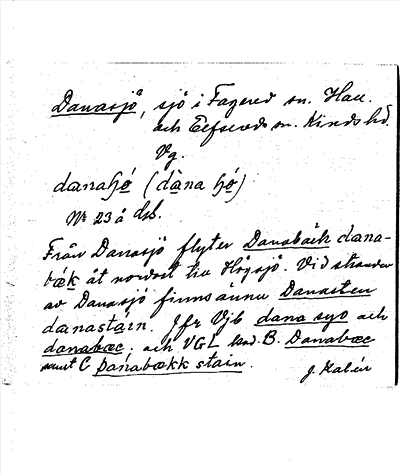 Danasjö, sjö i Fagered sn. Hall.
och Elfsereds sn. Kinds hd.
Vg.
danaʃó (dàna ʃó)
Nr 23 å
Från Danasjö flyter Danabäck dana-
bæk åt nordost till Högsjö. Vid stranden
av Danasjö finns ännu Danasten
danastáin. Jfr Vjb dana syo och
danabæc; och VGL kod. B. Danabæc
samt C þanabækk stain.
J. Kalén